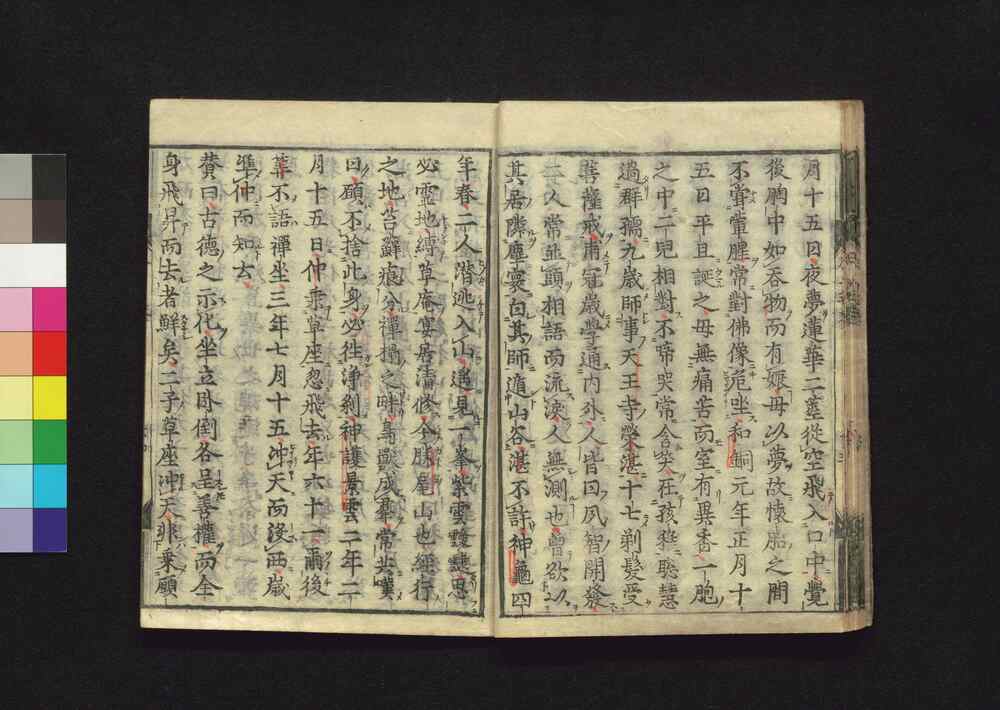 月十五日夜夢蓮華二莖從空飛入口中覺
後胸中如吞物而有娠母以夢故懷胎之間
不甞葷腥常對佛像危坐和銅元年正月十
五日平旦誕之母無痛苦而室有異香一胞
之中二兒相對不啼哭常含笑在孩稚聰慧
過群孺九歲師事天王寺榮湛十七剃髮受
菩薩戒甫冠歲學通內外人皆曰夙智開發
二人常並頭相語而流淚人無測也曾欲以
其居隣塵寰白其師遁山谷湛不許神龜四
年春二人潛逃入山遙見一峯紫雲靉靆思
必靈地縛草庵寓居濤修今勝尾山也經行
之地苔蘚痕分禪誦之時鳥獸成群常共嘆
曰願不捨此身必往淨刹神護景雲二年二
月十五日仲乘草座忽飛去年六十一爾後
筭不語禪坐三年七月十五沖天而沒兩歲
準仲而知去
贊曰古德之示化坐立臥倒各呈善權而全
身飛昇而去者鮮矣二子草座沖天非乘願